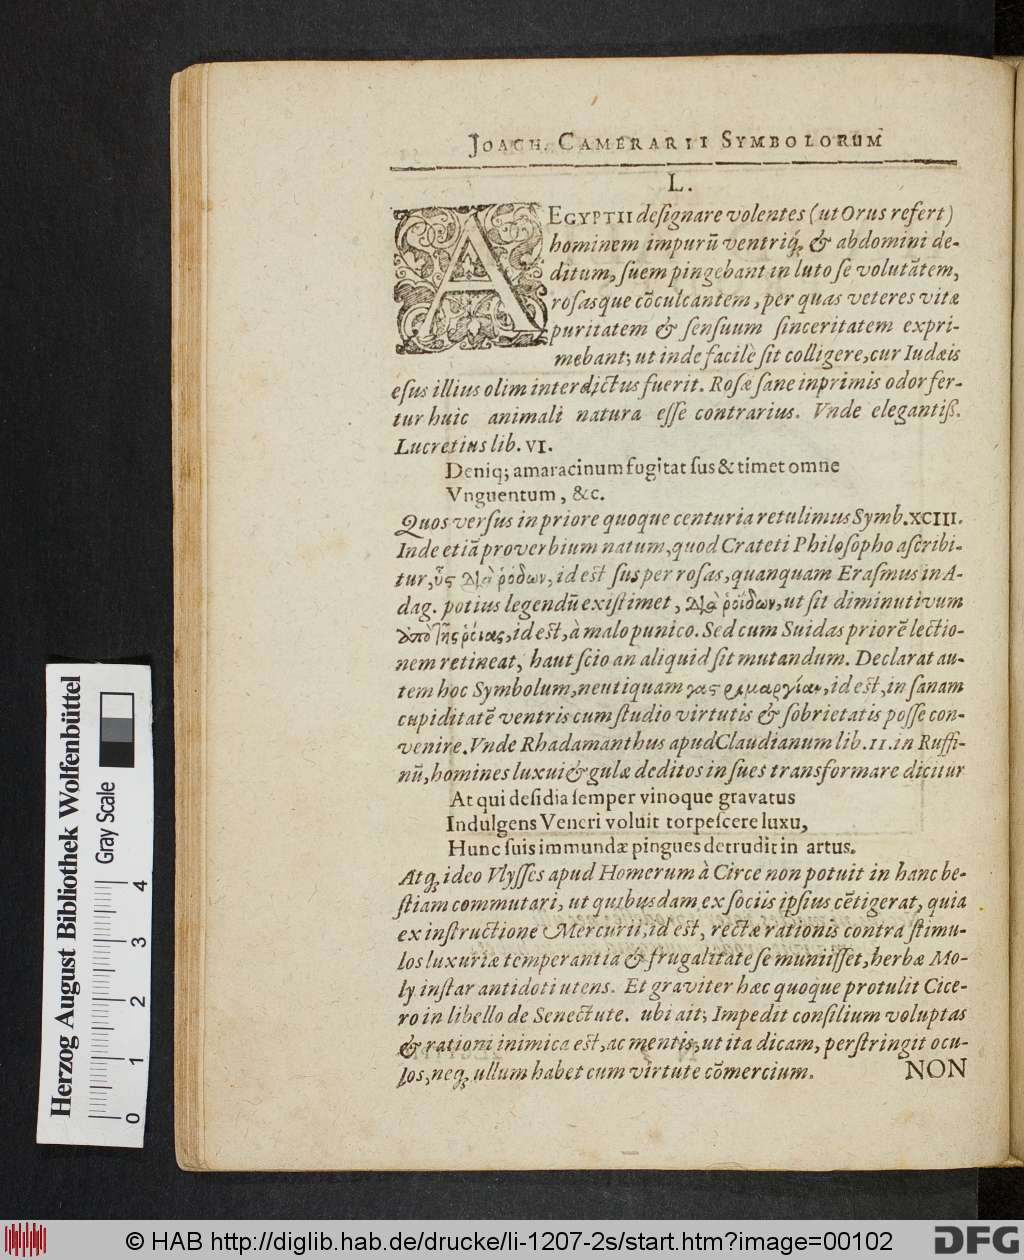 JOACH. CAMERARII SYMBOLORUM
L.
AEGYPTII deſignare volentes (ut Orus refert)
hominem impurū ventriq́; & abdomini de-
ditum, ſuem pingebant in luto ſe volutātem,
roſasque cōculcantem, per quas veteres vitæ
puritatem & ſenſuum ſinceritatem expri-
mebant; ut inde facilè ſit colligere, cur Iudæis
eſus illius olim interdictus fuerit. Roſæ ſane inprimis odor fer-
tur huic animali natura eſſe contrarius. Vnde elegantiß.
Lucretius lib. VI.
Deniq; amaracinum fugitat ſus & timet omne
Vnguentum, &c.
Quos verſus in priore quoque centuria retulimus Symb. XCIII.
Inde etiā proverbium natum, quod Crateti Philoſopho aſcribi-
tur, ὗς διὰ ῥόδων, id eſt ſus per roſas, quanquam Eraſmus in A-
dag. potius legendū exiſtimet, διὰ ῥοίδων, ut ſit diminutivum
ἀπὸ τῆς ῥοιας, id eſt, à malo punico. Sed cum Suidas priorē lectio-
nem retineat, haut ſcio an aliquid ſit mutandum. Declarat au-
tem hoc Symbolum, neutiquam γαςριμαργίαν, id eſt, inſanam
cupiditatē ventris cum ſtudio virtutis & ſobrietatis poſſe con-
venire. Vnde Rhadamanthus apud Claudianum lib. II. in Ruffi-
nū, homines luxui & gulæ deditos in ſues transformare dicitur
At qui deſidia ſemper vinoque gravatus
Indulgens Veneri voluit torpeſcere luxu,
Hunc ſuis immundæ pingues detrudit in artus.
Atq; ideo Vlyſſes apud Homerum à Circe non potuit in hanc be-
ſtiam commutari, ut quibusdam ex ſociis ipſius cētigerat, quia
ex inſtructione Mercurii, id eſt, rectæ rationis contra ſtimu-
los luxuriæ temperantia & frugalitate ſe muniiſſet, herbæ Mo-
ly inſtar antidoti utens. Et graviter hæc quoque protulit Cice-
ro in libello de Senectute. ubi ait; Impedit conſilium voluptas
& rationi inimica eſt, ac mentis, ut ita dicam, perſtringit ocu-
los, neq; ullum habet cum virtute cōmercium.
NON
Herzog August Bibliothek Wolfenbüttel
Gray Scale
0 1 2 3 4
© HAB http://diglib.hab.de/drucke/li-1207-2s/start.htm?image=00102
DFG